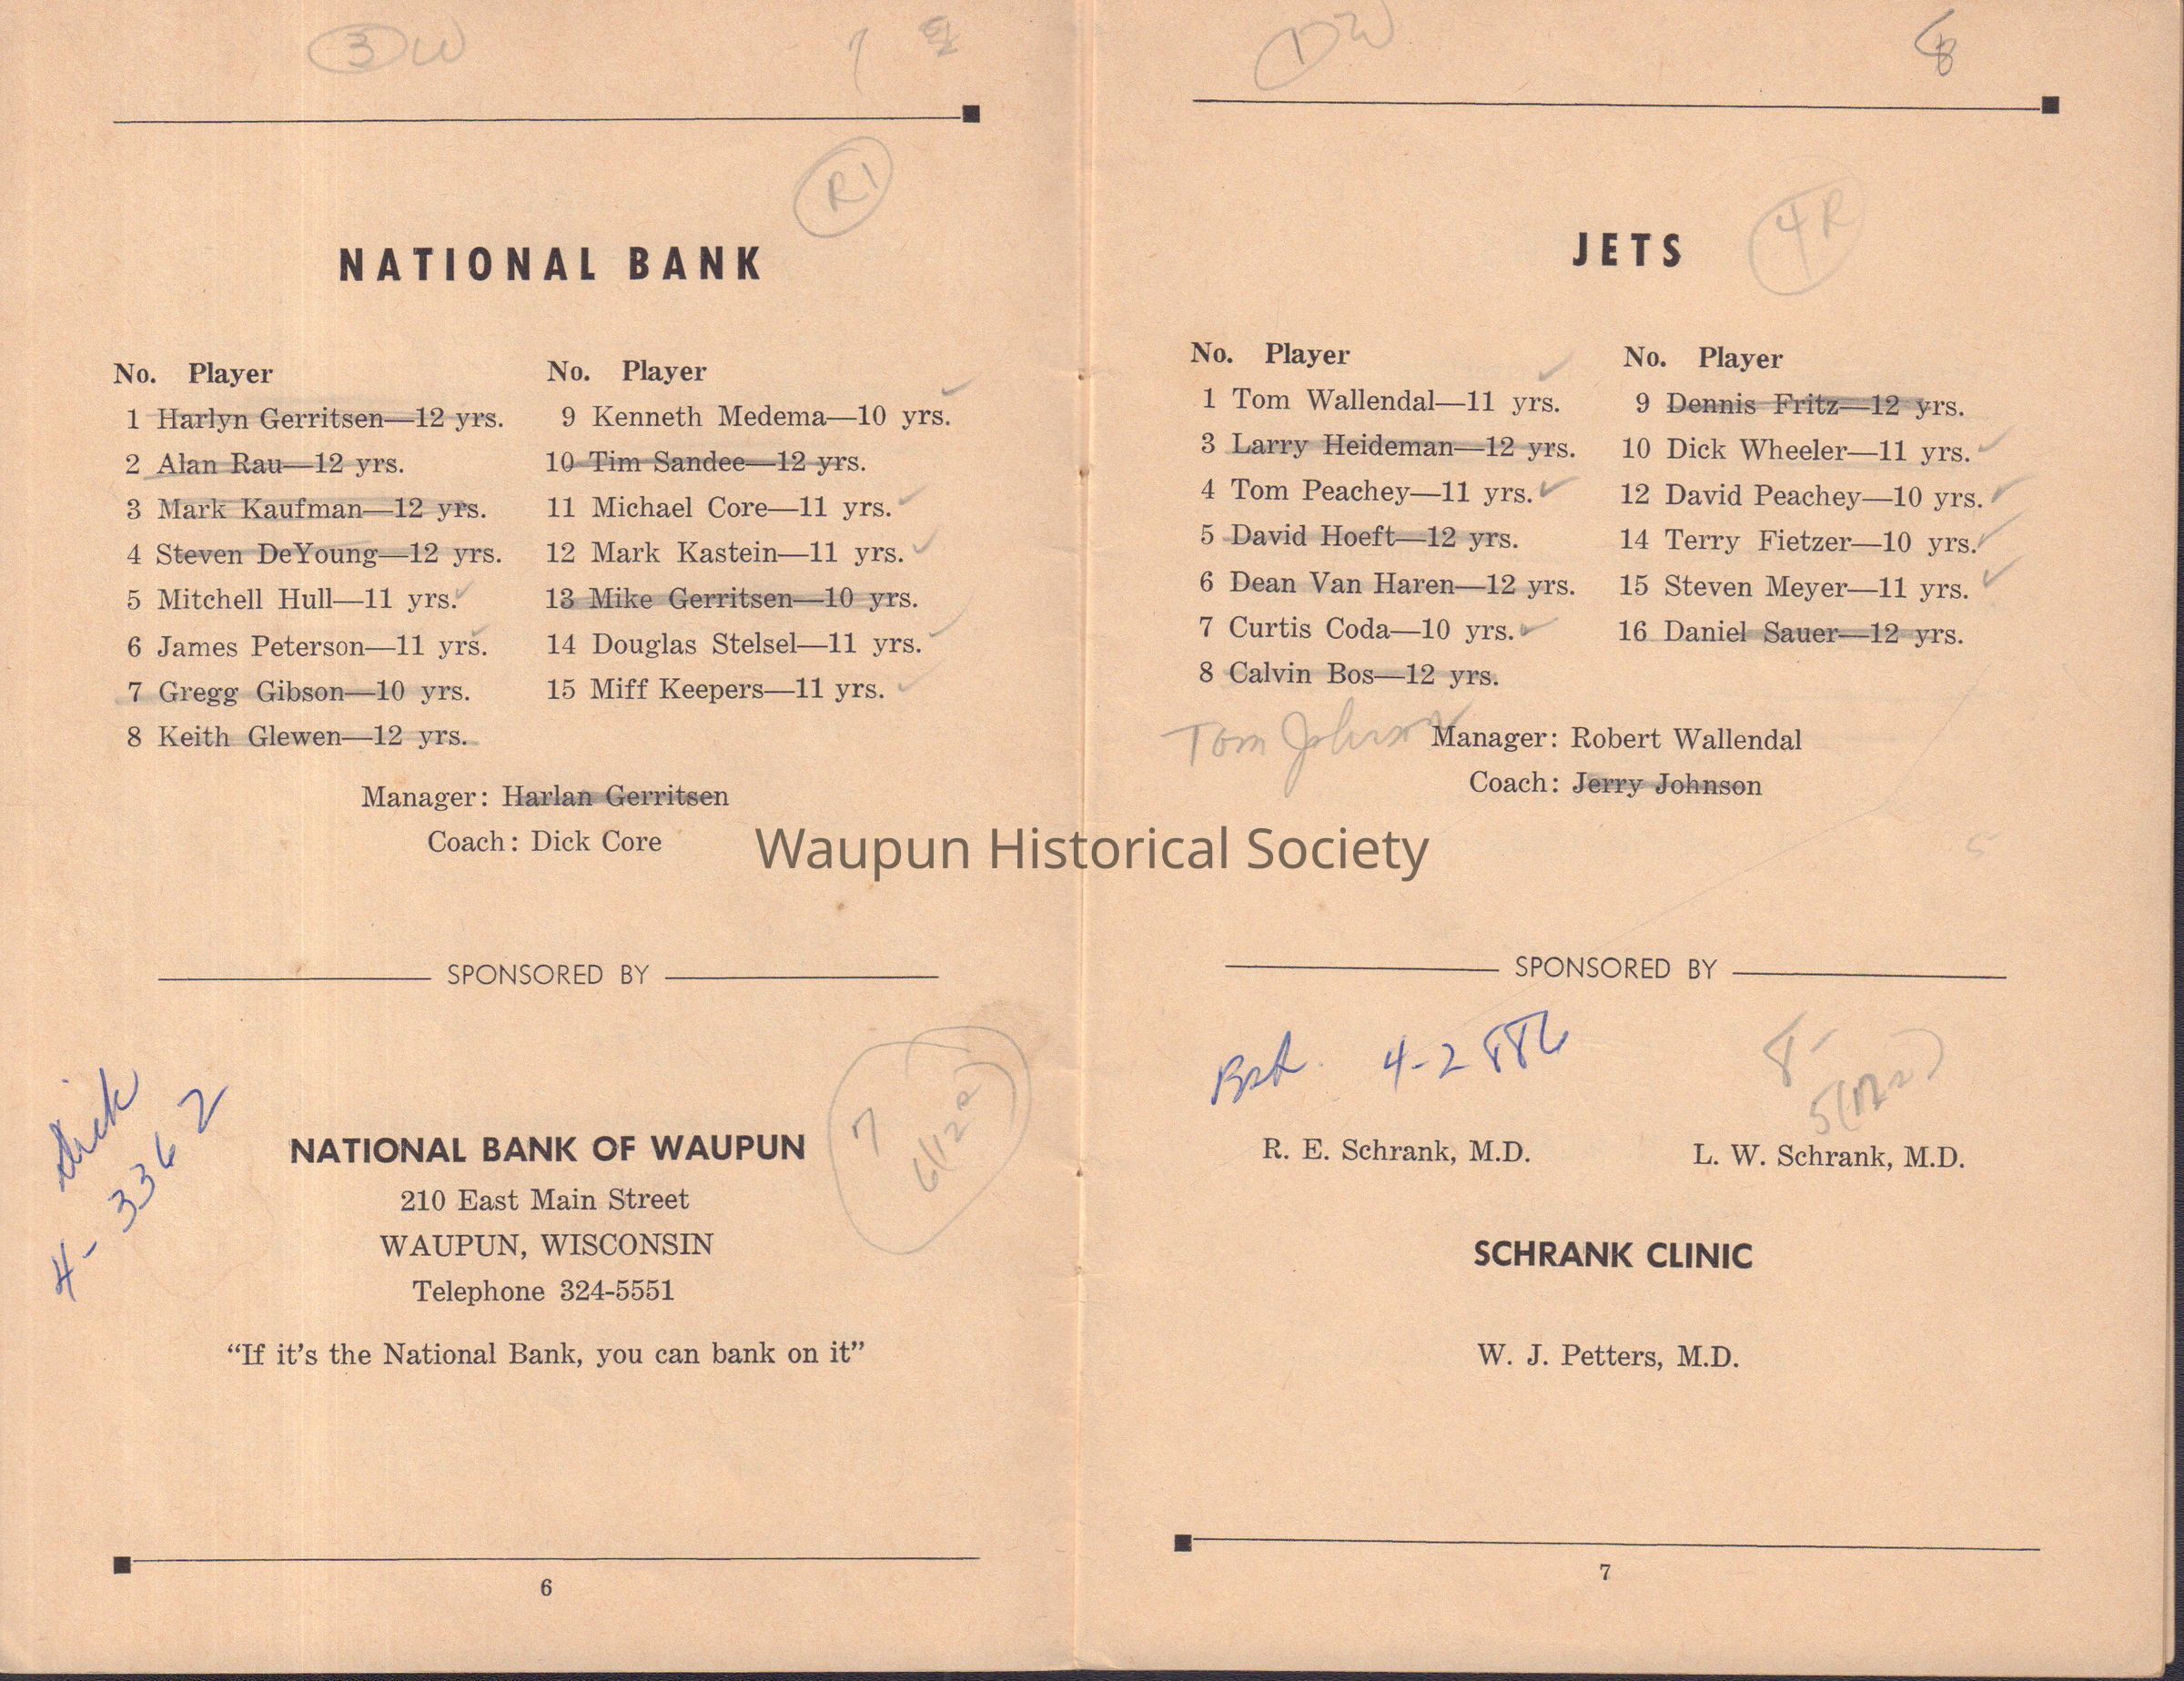 3 W
7
R1
NATIONAL BANK
No. Player
1 Harlyn Gerritsen—12 yrs.
2 Alan Rau—12 yrs.
3 Mark Kaufman—12 yrs.
4 Steven DeYoung—12 yrs.
5 Mitchell Hull—11 yrs.
6 James Peterson—11 yrs.
7 Gregg Gibson—10 yrs.
8 Keith Glewen—12 yrs.
No. Player
9 Kenneth Medema—10 yrs.
10 Tim Sandee—12 yrs.
11 Michael Core—11 yrs.
12 Mark Kastein—11 yrs.
13 Mike Gerritsen—10 yrs.
14 Douglas Stelsel—11 yrs.
15 Miff Keepers—11 yrs.
Manager: Harlan Gerritsen
Coach: Dick Core
SPONSORED BY
Dick
4-3362
7
NATIONAL BANK OF WAUPUN
210 East Main Street
WAUPUN, WISCONSIN
Telephone 324-5551
“If it’s the National Bank, you can bank on it”
6
1 W
8
4R
JETS
No. Player
1 Tom Wallendal—11 yrs.
3 Larry Heideman—12 yrs.
4 Tom Peachey—11 yrs.
5 David Hoeft—12 yrs.
6 Dean Van Haren—12 yrs.
7 Curtis Coda—10 yrs.
8 Calvin Bos—12 yrs.
No. Player
9 Dennis Fritz—12 yrs.
10 Dick Wheeler—11 yrs.
12 David Peachey—10 yrs.
14 Terry Fietzer—10 yrs.
15 Steven Meyer—11 yrs.
16 Daniel Sauer—12 yrs.
Tom Johnson
Manager: Robert Wallendal
Coach: Jerry Johnson
5
SPONSORED BY
4-2886
8-
R. E. Schrank, M.D.
L. W. Schrank, M.D.
SCHRANK CLINIC
W. J. Petters, M.D.
7
Waupun Historical Society